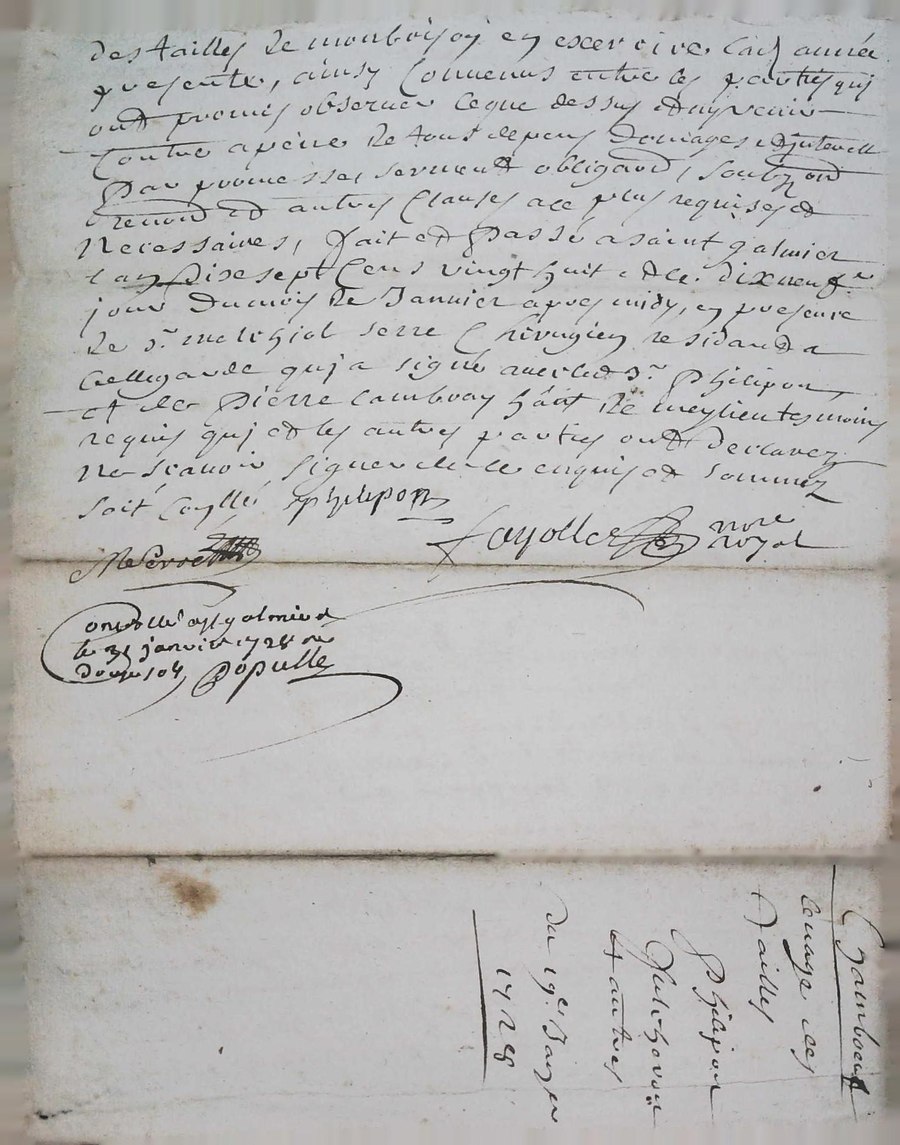 des tailles de monboisy en exercice lad année
presente, ainsy Convenus entre les parties qui
ont promis observer ce que dessus et ny venir
Contre a peine de tous depens domages et
par promesses serment obligaon, soubz on
renon et autres Clauses a ce plus requises et
Necessaires, fait et Passé a saint galmier
lan dixe sept Cens vingt huit et le dixneufe
jour du mois de Janvier apres midy, en presence
de sr melchiol serre Chirugien residand a
bellegarde quj a signé avec led sr Phelipon
et de Pierre de meylieu tesmoins
requis quj et les autres parties ont declarez
ne scavoir signer de ce enquis et sommez
soit Conllé phelipon
fayolle nore
royal
MeSerre
Controllé a St galmier
le 31 janvier 1728
douze sols Populle
Chambœuf
levage des
Tailles
Phelipon
& autres
Du 19e Janver
1728